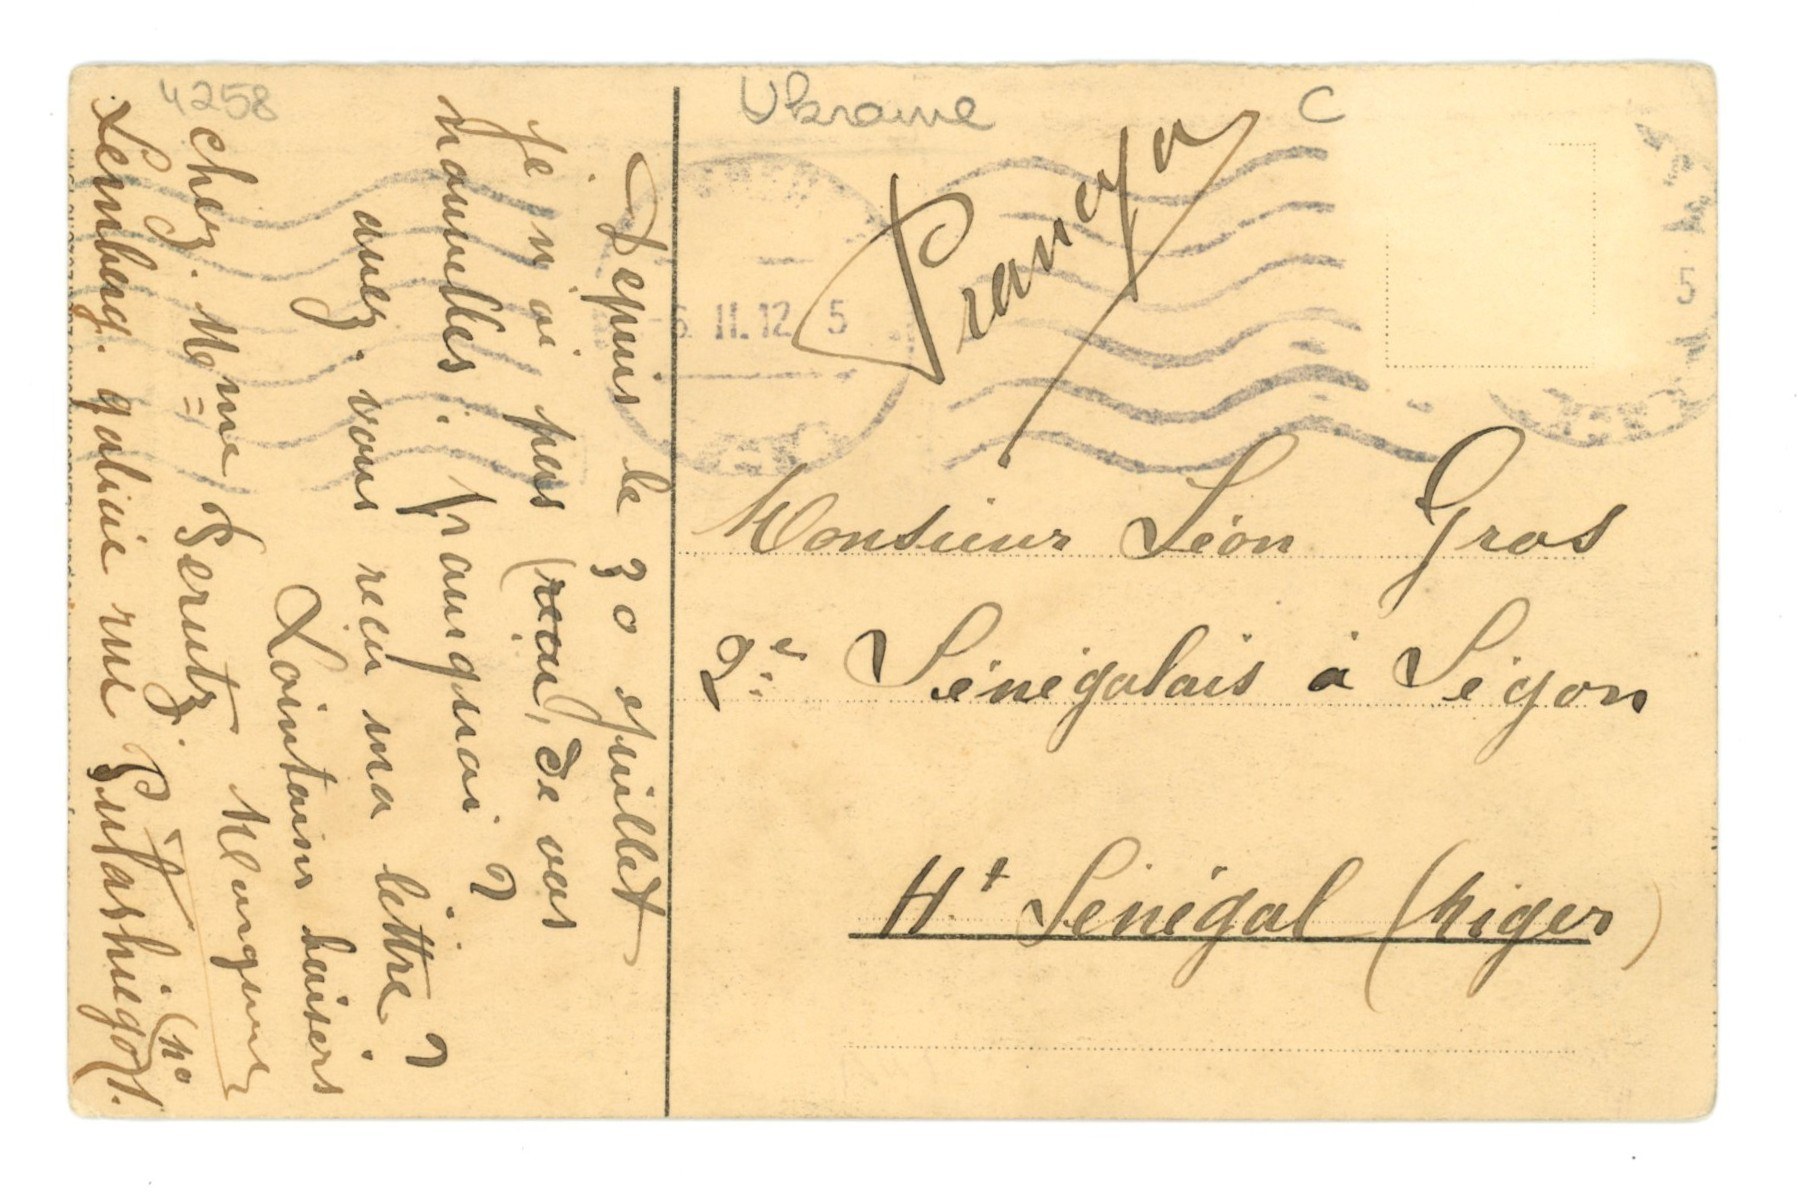 4258
Ukraine
C
Francya
6 11.12 5
5
Monsieur Léon Gros
2e Sénégalais à Ségou
Ht Sénégal (Niger)
Depuis le 30 juillet
je n'ai pas (reçu) de vos
nouvelles. pourquoi?
avez. vous reçu ma lettre?
Lointains baisers
chez. Mme Perutz.
Lemberg. galicie rue